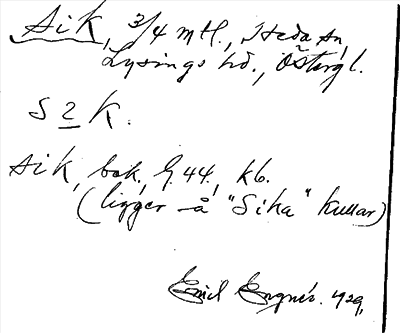 Sik, 3/4 mtl., Heda sn,
Lysings hd., Östergl.
S 2 K.
Sik, bok, G. 44, kb.
(ligger å "Sika" kullar)
Emil Engnér. 1929,